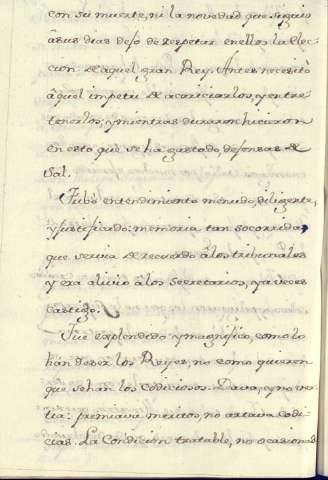 con su muerte, ni la novedad que siguio
â sus dias dejo de respetar en ellos la elec-
cion de aquel gran Rey. Antes necesitò
âquel impetu de acariciarlos, y entre-
tenerlos; y mientras duraron hicieron
en esto que se ha gastado, defensas de
sal.
Tubo entendimiento menudo, diligente,
y justificado: memoria tan socorrida,
que servia de recuerdo â los tribunales
y era alivio â los Secretarios, y a veces
castigo.
Fue explendido y magnifico, como lo
hán de ser los Reyes, no como quieren
que sehan los Codiciosos. Dava, y no ver-
tia: premiava meritos, no artava codi-
cias. La Condicion tratable, no ocasionad